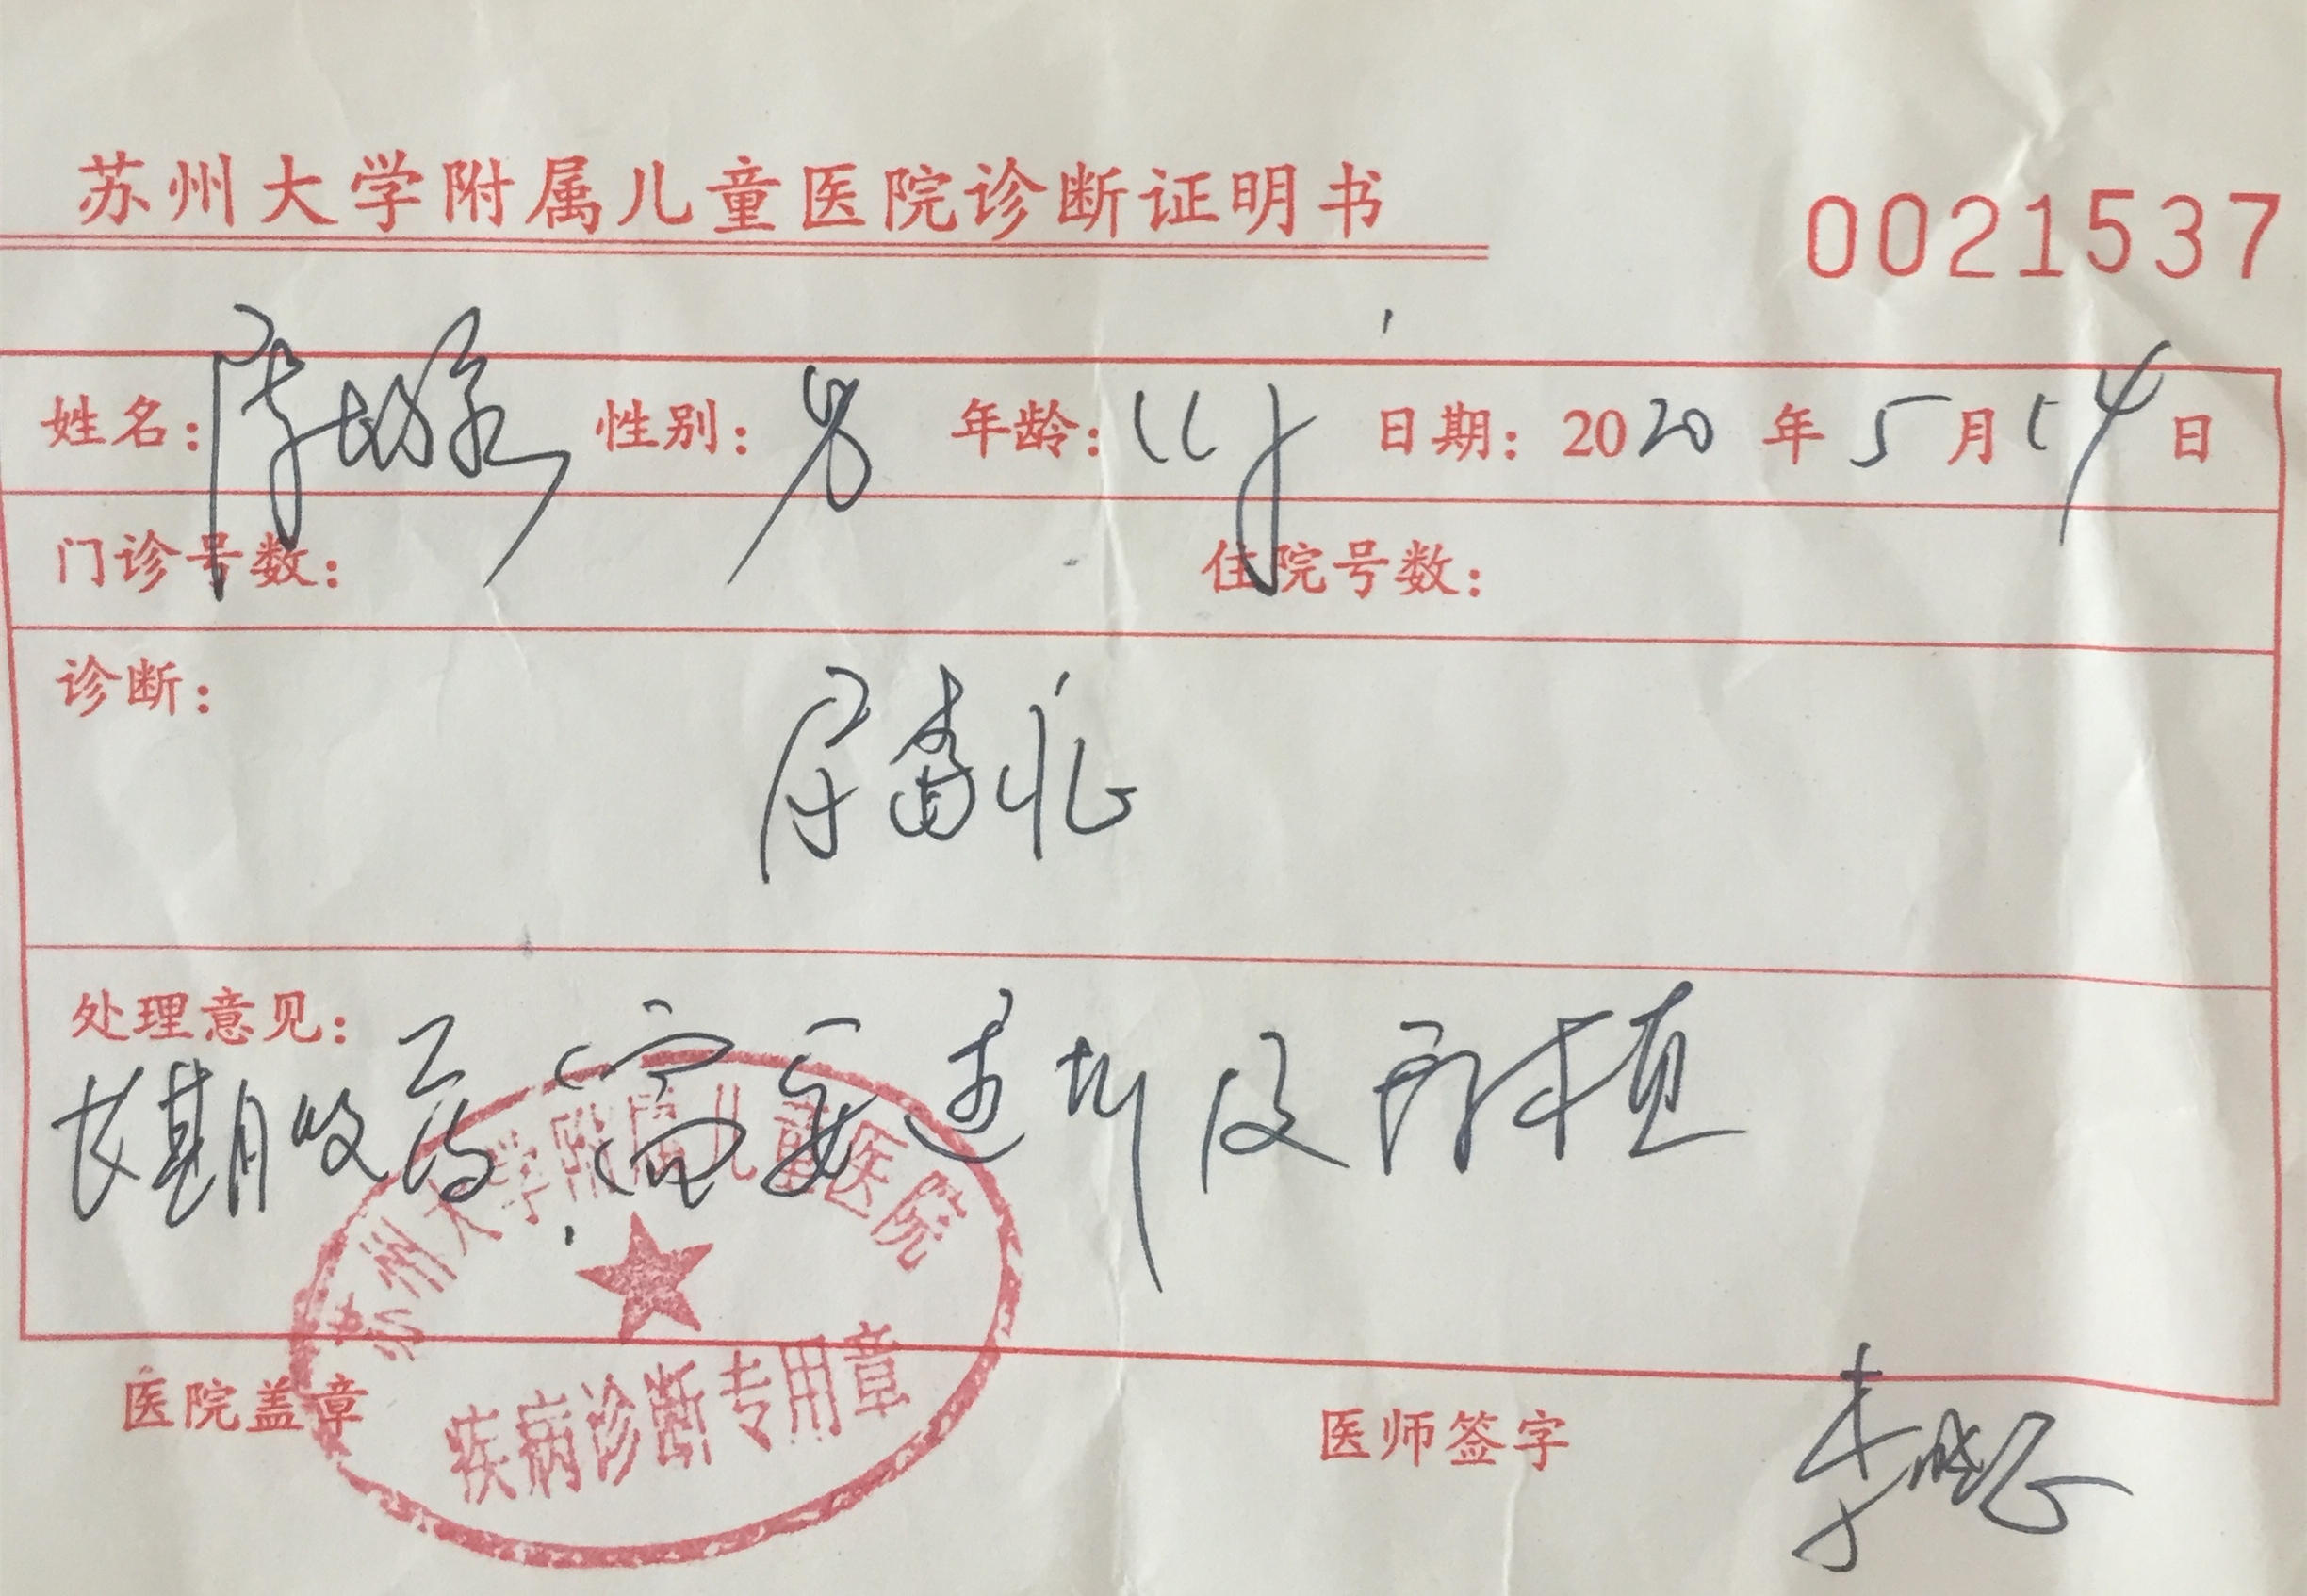 苏州大学附属儿童医院诊断证明书
0021537
姓名: 性别: 男 年龄: 11岁 日期: 2020 年 5 月 14 日
门诊号数: 住院号数:
诊断:
尿毒症
处理意见:
长期服药,需要透析及肾移植
苏州大学附属儿童医院
疾病诊断专用章
医院盖章 医师签字 李晓忠